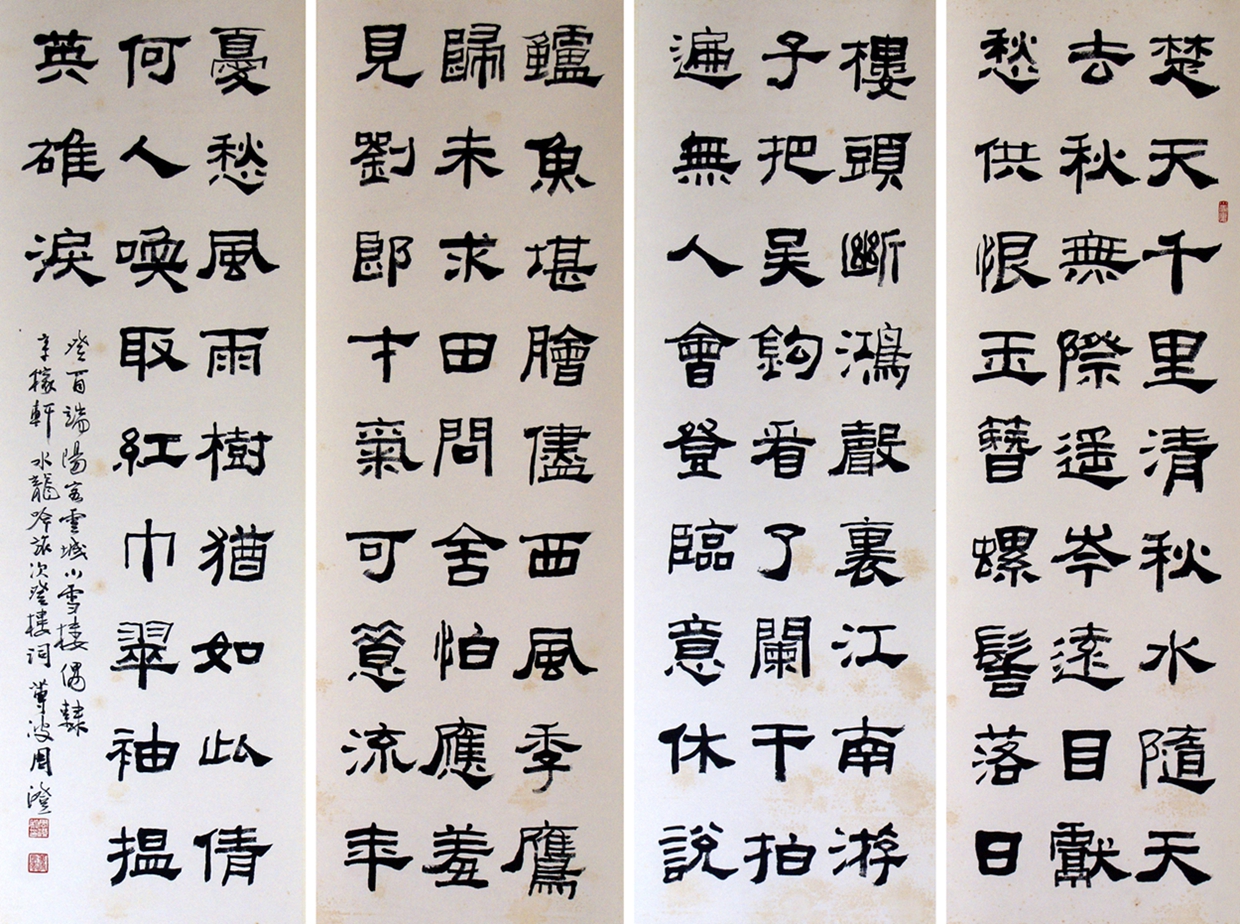 楚天千里清秋水隨天
去秋無際遥岑遠目獻
愁供恨玉簪螺髻落日
樓頭斷鴻聲裏江南游
子把吴鈎看了闌干拍
遍無人會登臨意休説
鱸魚堪膾儘西風季鷹
歸未求田問舍怕應羞
見劉郎才氣可惜流年
憂愁風雨樹猶如此倩
何人唤取紅巾翠袖揾
英雄淚
癸酉端陽客雲城小雪楼偶隸
辛稼軒水龍吟旅次登楼詞 周澄